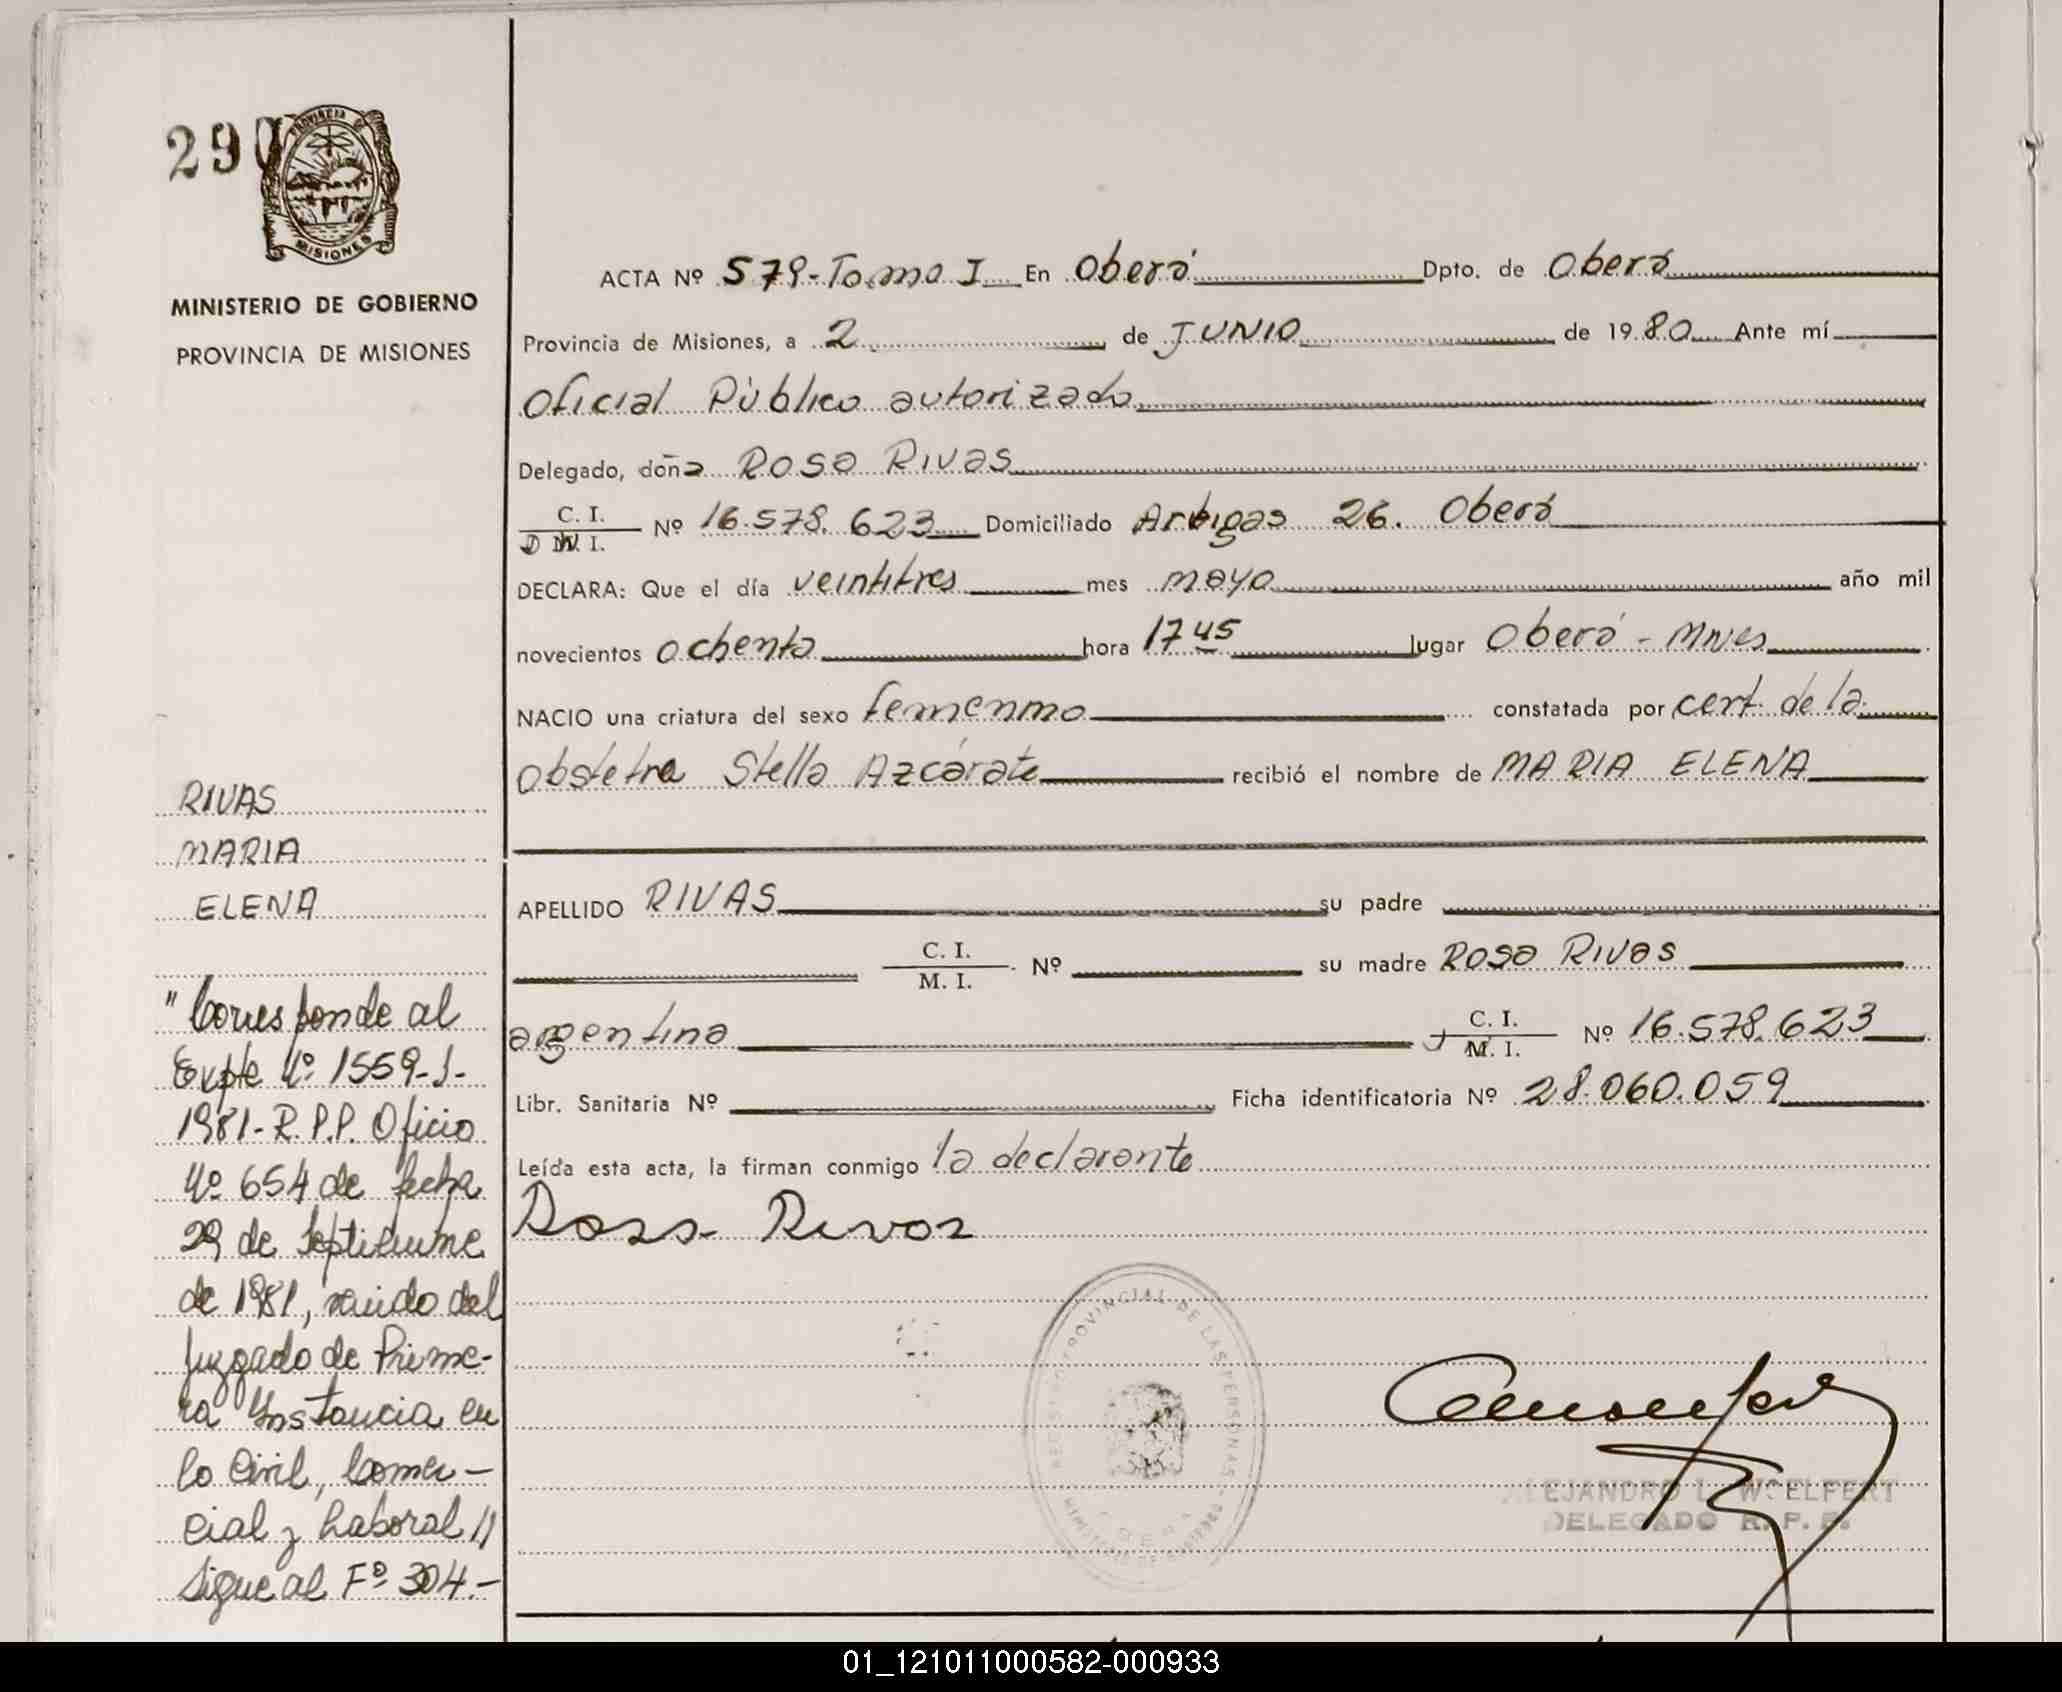 290
PROVINCIA DE
MISIONES
MINISTERIO DE GOBIERNO
PROVINCIA DE MISIONES
ACTA Nº 579-Tomo I En Oberá Dpto. de Oberá
Provincia de Misiones, a 2 de JUNIO de 1980 Ante mí
Oficial Público autorizado
Delegado, doña Rosa Rivas
C. I.
D N. I. Nº 16.578.623 Domiciliado Artigas 26. Oberá
DECLARA: Que el día veintitres mes mayo año mil
novecientos ochenta hora 17 45 lugar Oberá - Mnes
NACIO una criatura del sexo femenino constatada por cert. de la
obstetra Stella Azcárate recibió el nombre de MARIA ELENA
RIVAS
MARIA
ELENA
APELLIDO RIVAS su padre
C. I.
M. I. Nº su madre Rosa Rivas
argentina C. I.
M. I. Nº 16.578.623
Libr. Sanitaria Nº Ficha identificatoria Nº 28.060.059
Leída esta acta, la firman conmigo la declarante
Rosa Rivas
"Corresponde al
Expte Nº 1559-J-
1981-R.P.P. Oficio
Nº 654 de fecha
29 de Septiembre
de 1981, venido del
Juzgado de Prime-
ra Instancia en
lo Civil, Comer-
cial y Laboral //
Sigue al Fº 304.-
REGISTRO PROVINCIAL DE LAS PERSONAS
ALEJANDRO L. WOELFERT
DELEGADO R. P. P.
01_121011000582-000933